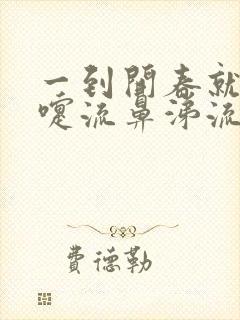 一到開春就
嚏流鼻涕流
費德勒